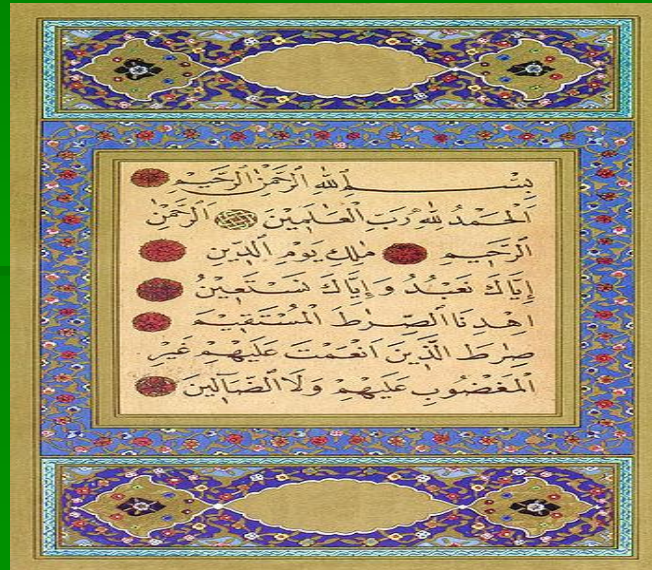 بِسْمِ اللهِ الرَّحْمٰنِ الرَّحِيمِ
اَلْحَمْدُ لِلّٰهِ رَبِّ الْعَالَمِينَ اَلرَّحْمٰنِ
الرَّحِيمِ مَالِكِ يَوْمِ الدِّينِ
إِيَّاكَ نَعْبُدُ وَإِيَّاكَ نَسْتَعِينُ
اِهْدِنَا الصِّرَاطَ الْمُسْتَقِيمَ
صِرَاطَ الَّذِينَ اَنْعَمْتَ عَلَيْهِمْ غَيْرِ
الْمَغْضُوبِ عَلَيْهِمْ وَلَا الضَّالِّينَ